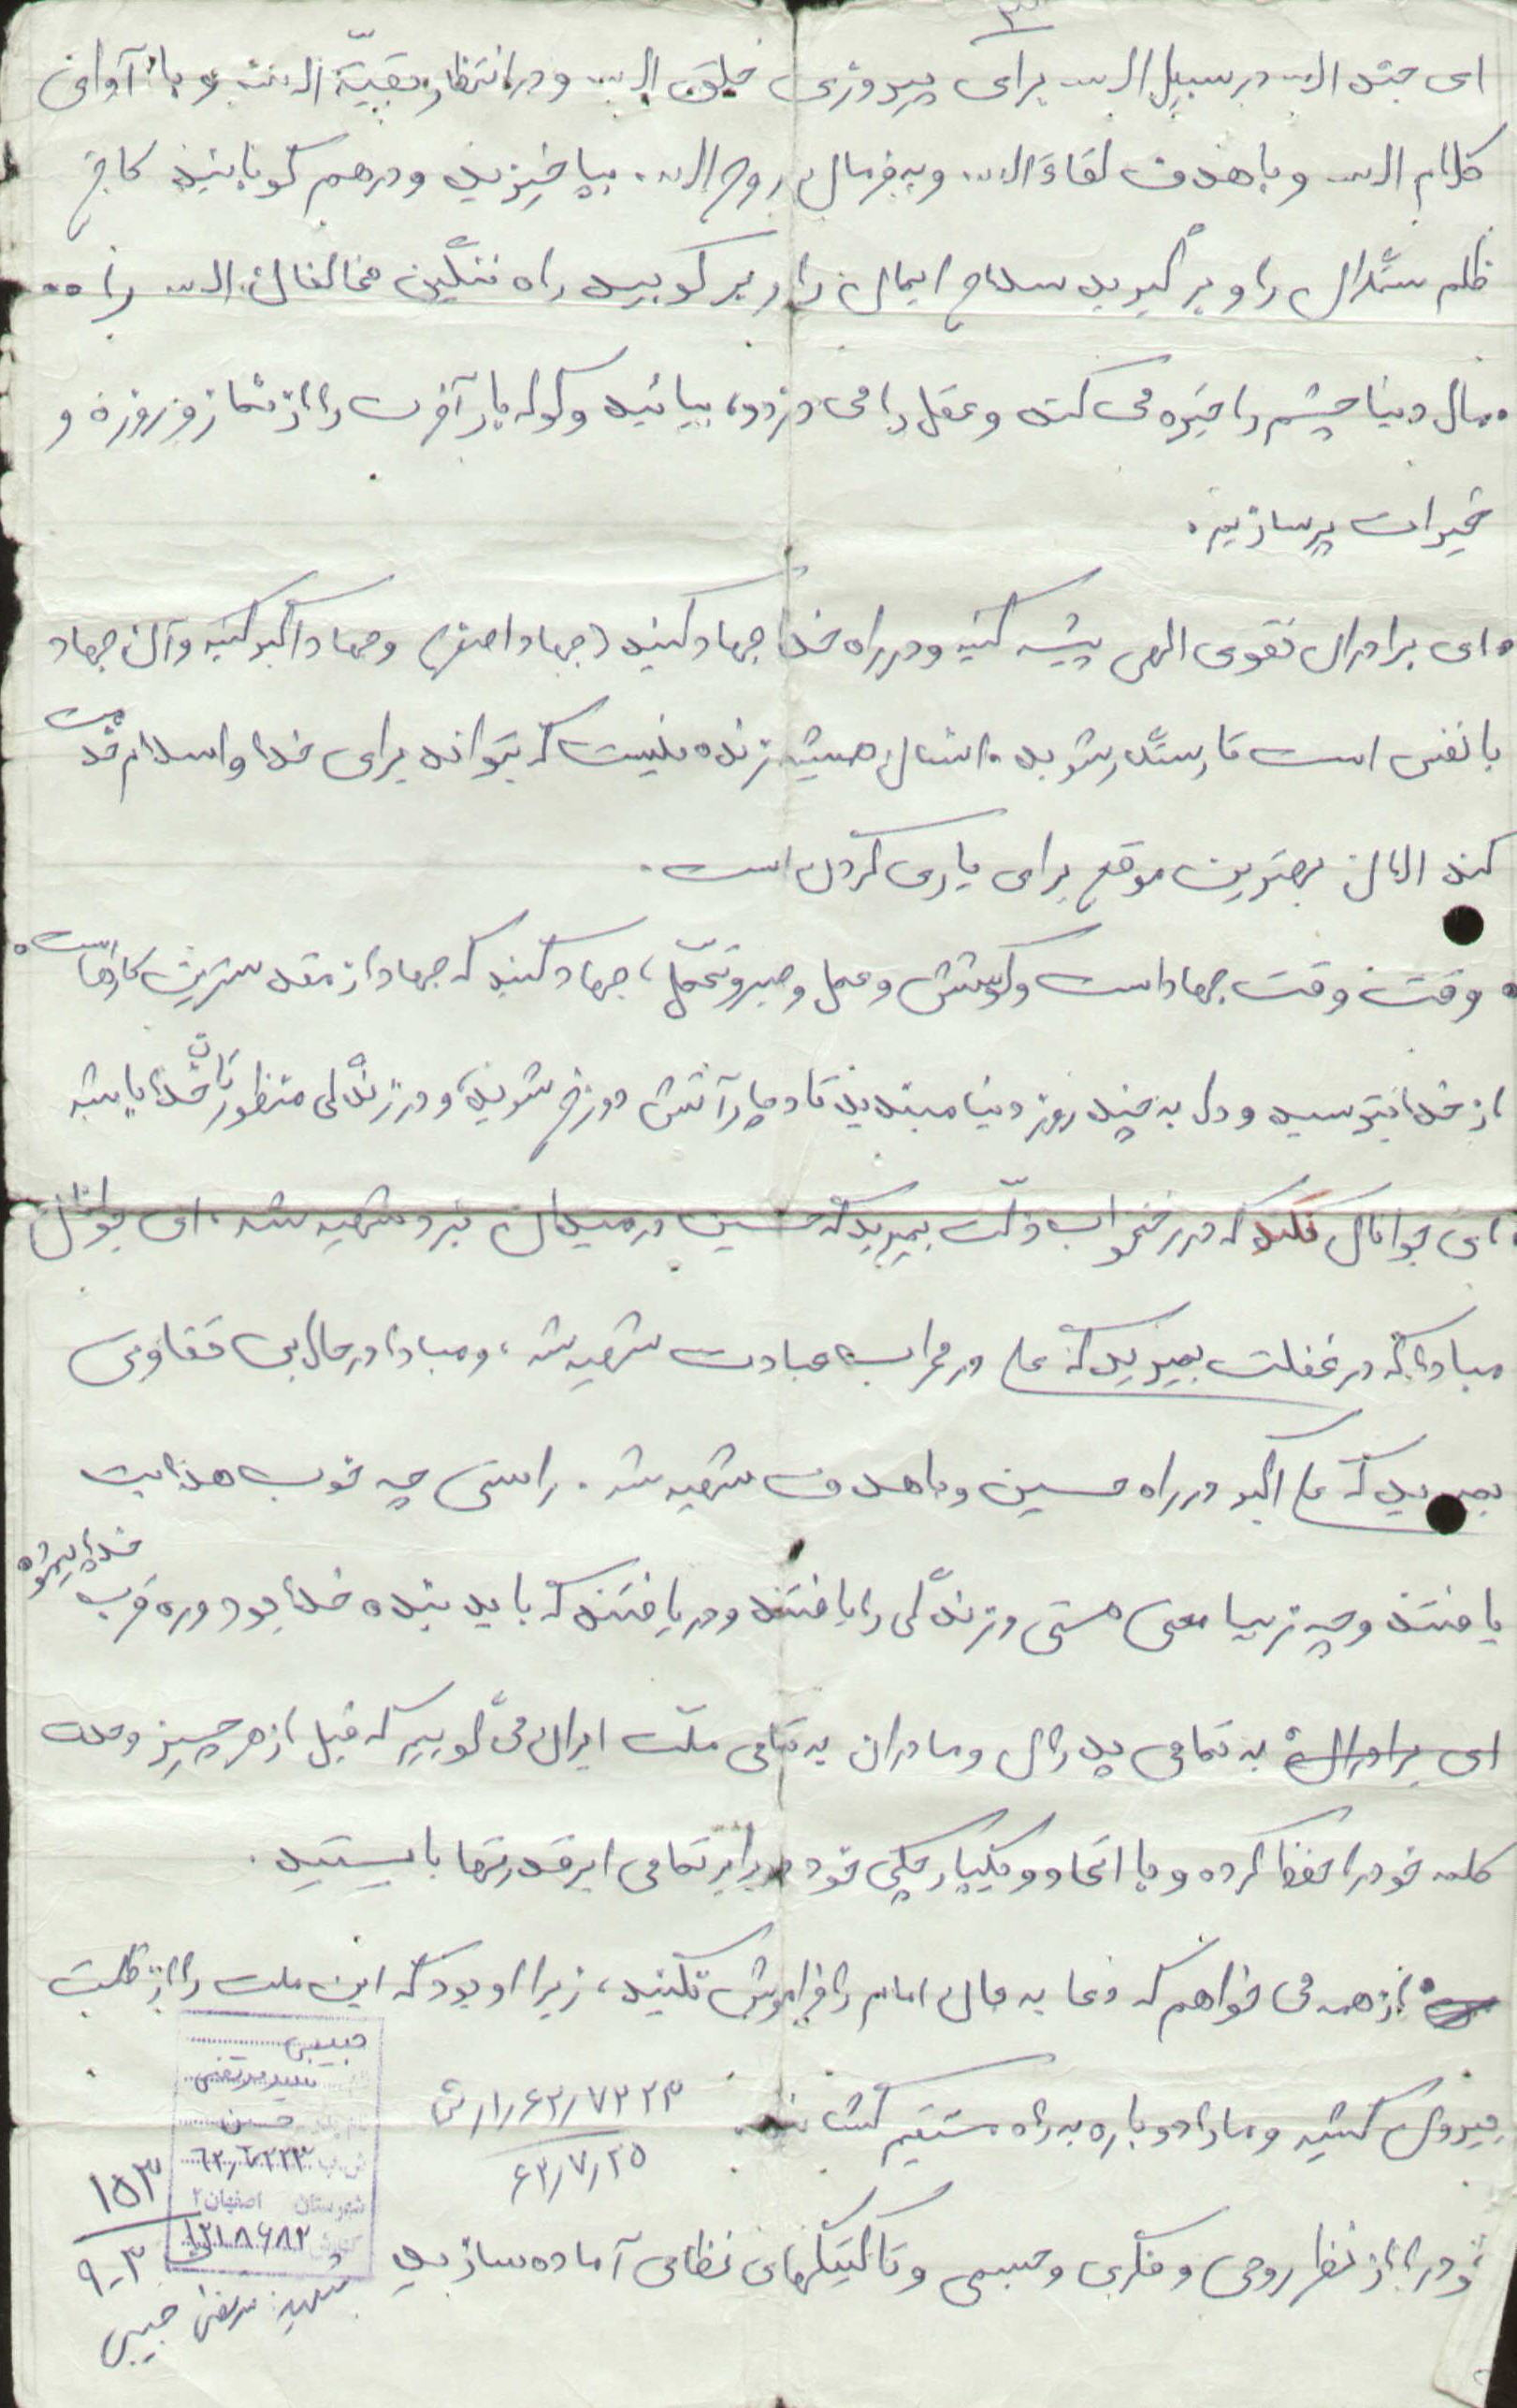 ۳
ای جند الله در سبیل الله برای پیروزی خلق الله و در انتظار بقیّة الله و با آوای
کلام الله و با هدف لقاء الله و به فرمان روح الله. بپاخیزید و درهم کوبانید کاخ
ظلم ستمگران را و برگیرید سلاح ایمان را و بر کوبید راه ننگین مخالفان الله را ..
. مال دنیا چشم را خیره می کند و عقل را می دزدد، بیائید و کوله بار آخرت را از نماز و روزه و
خیرات پر سازیم.
. ای برادران تقوی الهی پیشه کنید و در راه خدا جهاد کنید (جهاد اصغر) و جهاد اکبر کنید و آن جهاد
با نفس است تا رستگار شوید. انسان همیشه زنده نیست که بتواند برای خدا و اسلام خدمت
کند الان بهترین موقع برای یاری کردن است.
. وقت وقت جهاد است و کوشش و عمل و صبر و تحمّل، جهاد کنید که جهاد از مقدسترین کارها است.
از خدا بترسید و دل به چند روز دنیا مبندید تا دچار آتش دوزخ شوید، و در زندگی منظورتان خدا باشد
. ای جوانان نکند که در رختخواب ذلّت بمیرید که حسین در میدان نبرد شهید شد، ای جوانان
مبادا که در غفلت بمیرید که علی در محراب عبادت شهید شد، و مبادا در حال بی تفاوتی
بمیرید که علی اکبر در راه حسین و با هدف شهید شد. راستی چه خوب هدایت
یافتند و چه زیبا معنی هستی و زندگی را یافتند و دریافتند که باید بنده خدا بود و ره قرب خدا پیمود
ای برادران به تمامی پدران و مادران به تمامی ملّت ایران می گوییم که قبل از هر چیز وحدت
کلمه خود را حفظ کرده و با اتحاد و یکپارچگی خود در برابر تمامی ابرقدرتها بایستید.
. از همه می خواهم که دعا به جان امام را فراموش نکنید، زیرا او بود که این ملت را از ظلمت
بیرون کشید و ما را دوباره به راه مستقیم کشاند.
۶۲٫۷۳۲۳ ر۱ رش
۶۲٫۷٫۲۵
خود را از نظر روحی و فکری و جسمی و تاکتیکهای نظامی آماده سازید
حبیبی
سید مرتضی
حسن
شهرستان اصفهان ۲
۱۲۱۸۶۸۲
۱۵۳
۹-۳
شهید: مرتضی حبیبی